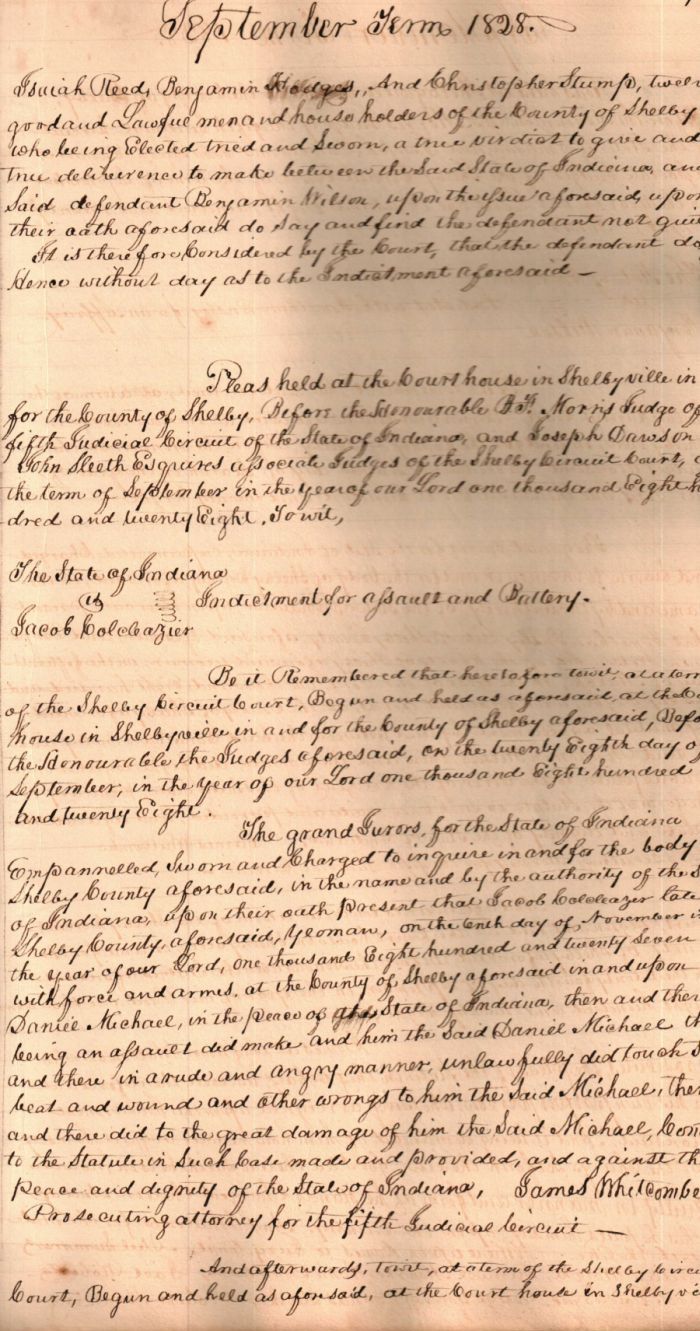 September Term 1828.
Isaiah Reed, Benjamin Hodges, And Christopher Stump, twel
good and Lawful men and house holders of the County of Shelby
who being Elected tried and Sworn, a true virdict to give and
true deliverence to make between the Said State of Indiana, an
Said defendant Benjamin Wilson, upon the issue aforesaid, upon
their oath aforesaid do Say and find the defendant not guil
It is therefore Considered by the Court, that the defendant do
Hence without day as to the Indictment aforesaid —
Pleas held at the Court house in Shelbyville in
for the County of Shelby, Before the Honourable B.F. Morris Judge of
fifth Judicial Circuit of the State of Indiana, and Joseph Dawson
John Sleeth Esquires associate Judges of the Shelby Circuit Court,
the term of September in the year of our Lord one thousand Eight h
dred and twenty Eight, To wit,
The State of Indiana
vs Indictment for assault and Battery.
Jacob Colcleazier
Be it Remembered that heretofore towit, at a term
of the Shelby Circuit Court, Begun and held as aforesaid, at the Co
house in Shelbyville in and for the County of Shelby aforesaid, Befo
the Honourable the Judges aforesaid, on the twenty Eighth day o
September, in the year of our Lord one thousand Eight hundred
and twenty Eight.
The grand Jurors, for the State of Indiana
Empannelled, Sworn and Charged to inquire in and for the body
Shelby County aforesaid, in the name and by the authority of the S
of Indiana, upon their oath present that Jacob Colcleazer late
Shelby County, aforesaid, Yeoman, on the tenth day of November i
the year of our Lord, one thousand Eight hundred and twenty Seven
with force and armes, at the County of Shelby aforesaid in and upon
Daniel Michael, in the peace of the State of Indiana, then and ther
being an assault did make and him the Said Daniel Michael th
and there in a rude and angry manner, unlawfully did touch S
beat and wound and other wrongs to him the Said Michael, then
and there did to the great damage of him the Said Michael, Con
to the Statute in Such Case made and provided, and against th
peace and dignity of the State of Indiana, James Whitcombe
Prosecuting attorney for the fifth Judicial Circuit —
And afterwards, towit, at a term of the Shelby Circu
Court, Begun and held as aforesaid, at the Court house in Shelbyvi